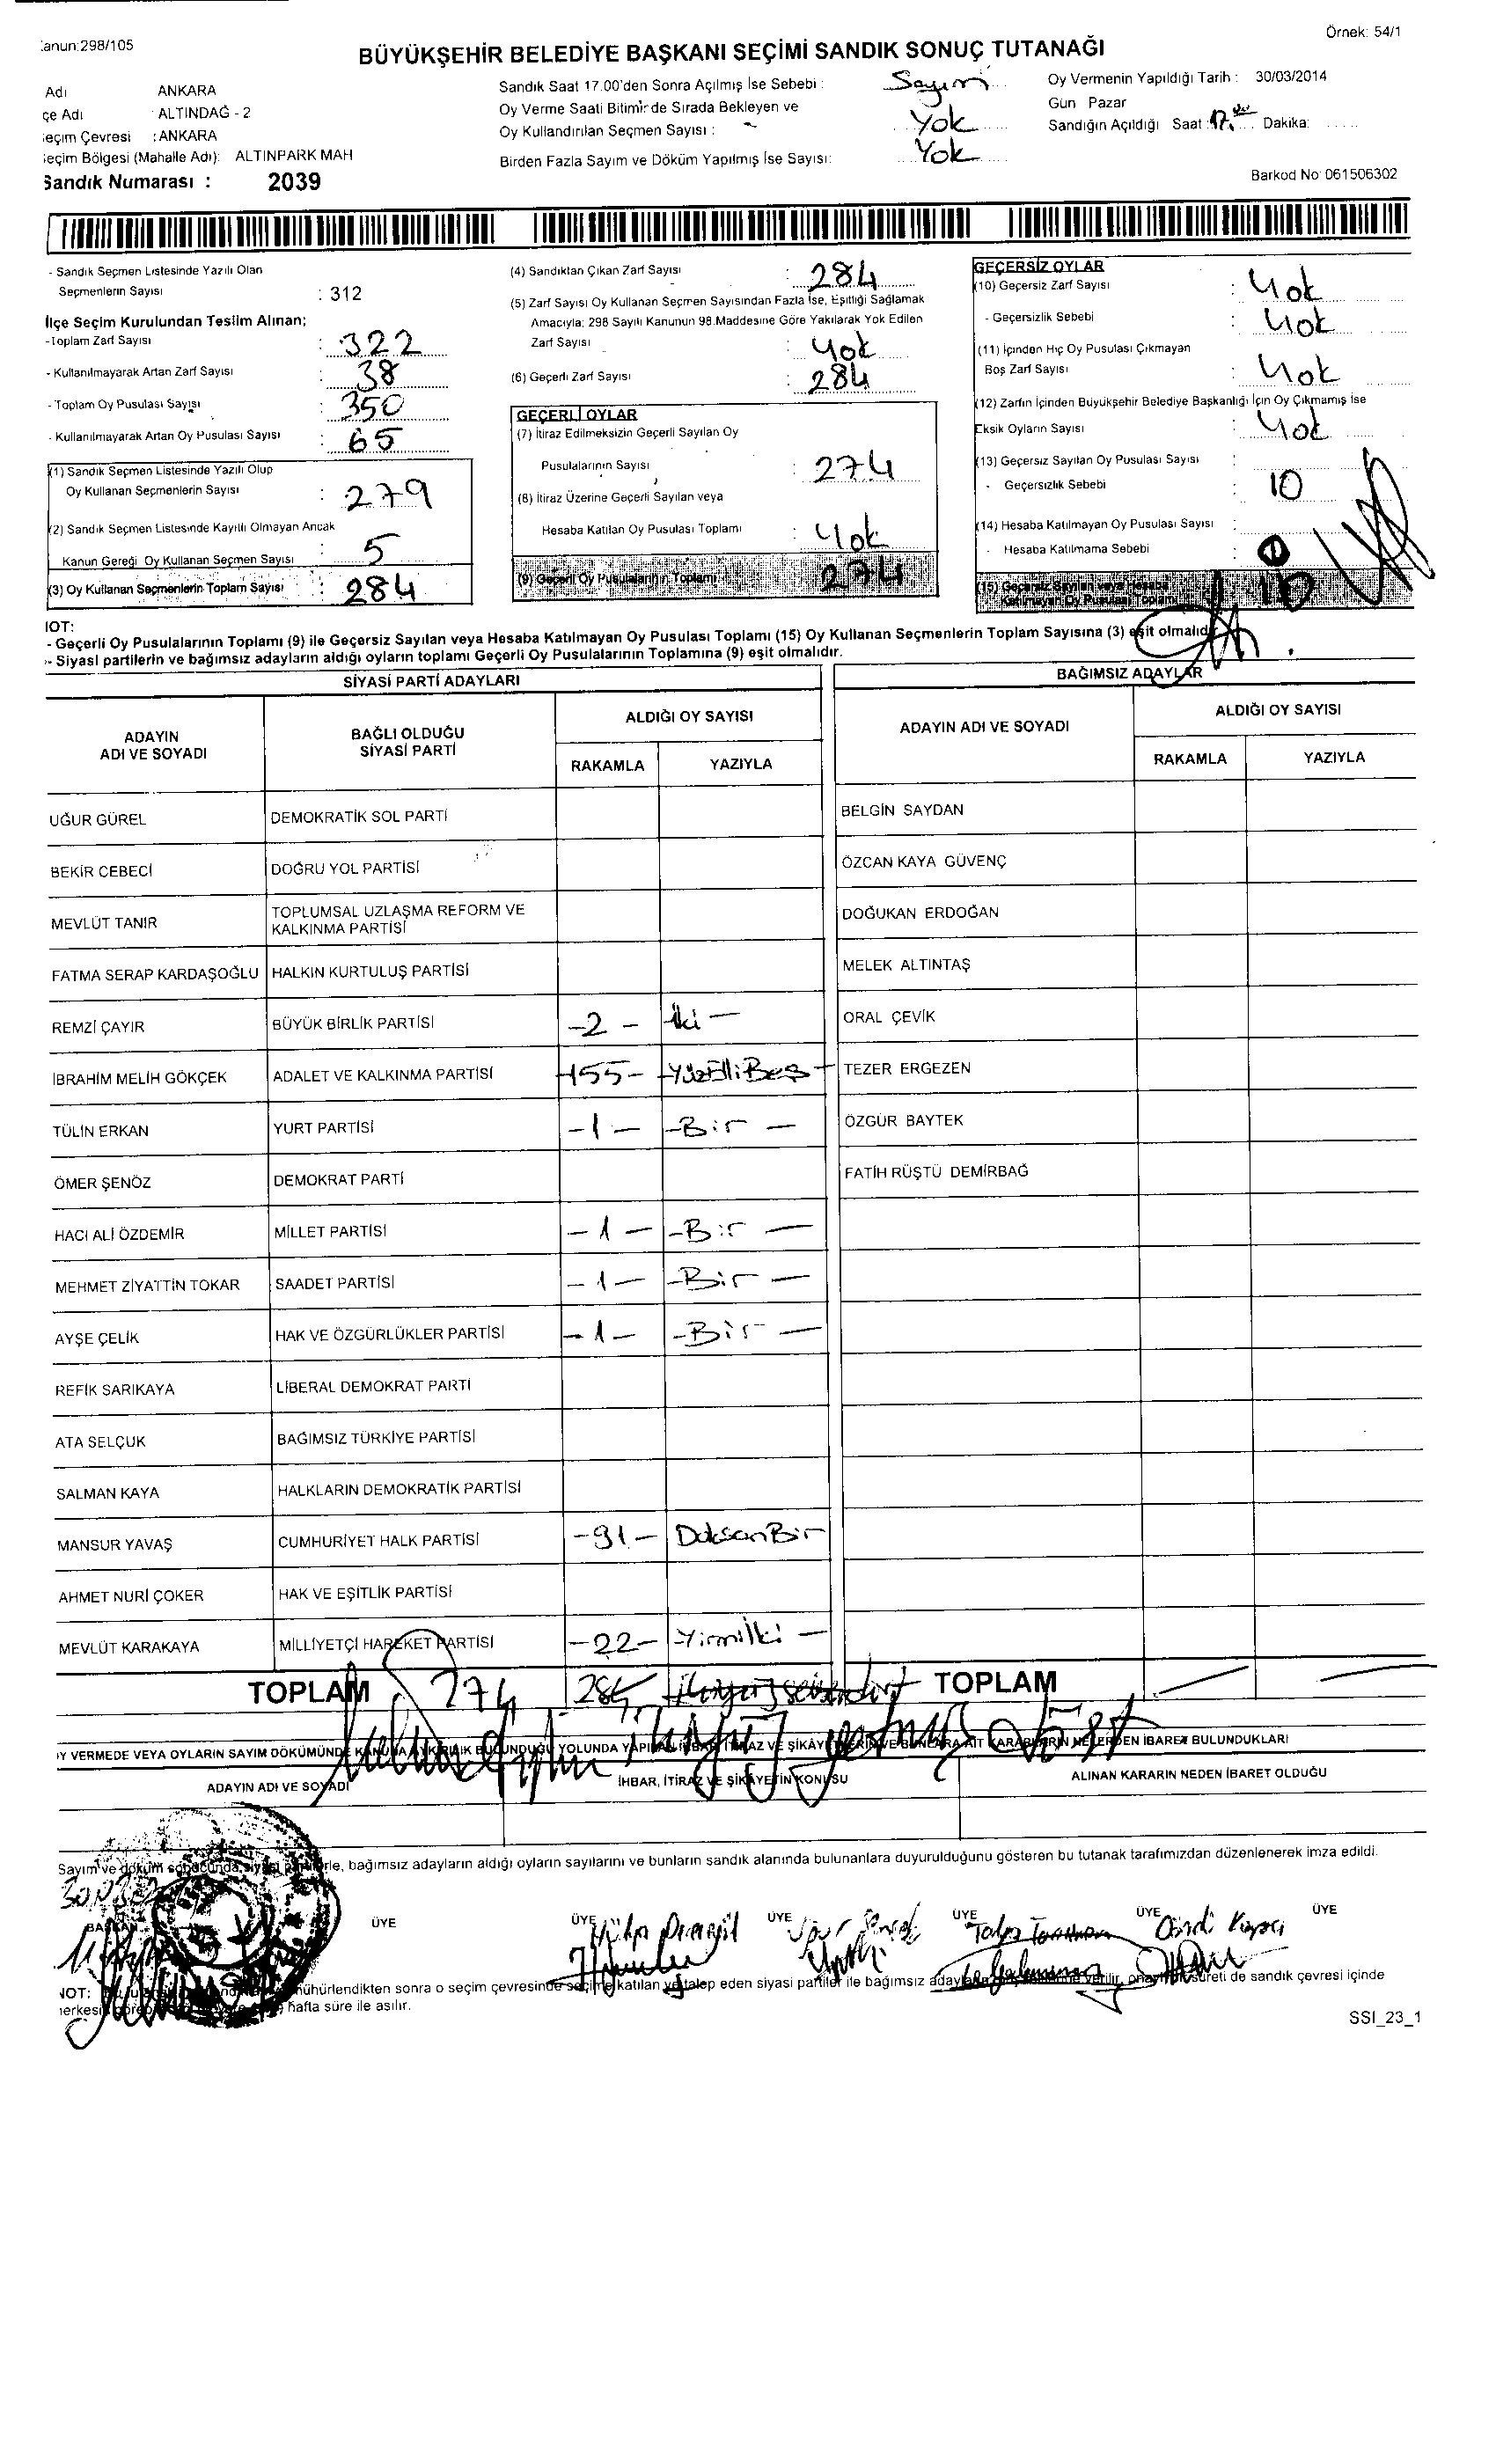 Kanun:298/105
Örnek: 54/1
BÜYÜKŞEHİR BELEDİYE BAŞKANI SEÇİMİ SANDIK SONUÇ TUTANAĞI
Adı ANKARA
çe Adı : ALTINDAĞ - 2
eçim Çevresi : ANKARA
eçim Bölgesi (Mahalle Adı): ALTINPARK MAH
Sandık Numarası : 2039
Sandık Saat 17.00'den Sonra Açılmış İse Sebebi : Sayım
Oy Verme Saati Bitiminde Sırada Bekleyen ve
Oy Kullandırılan Seçmen Sayısı : Yok
Birden Fazla Sayım ve Döküm Yapılmış İse Sayısı: Yok
Oy Vermenin Yapıldığı Tarih : 30/03/2014
Gün Pazar
Sandığın Açıldığı Saat : 17. Dakika:
Barkod No 061506302
- Sandık Seçmen Listesinde Yazılı Olan
Seçmenlerin Sayısı : 312
İlçe Seçim Kurulundan Teslim Alınan:
-Toplam Zarf Sayısı : 322
- Kullanılmayarak Artan Zarf Sayısı : 38
- Toplam Oy Pusulası Sayışı : 350
- Kullanılmayarak Artan Oy Pusulası Sayısı : 65
(1) Sandık Seçmen Listesinde Yazılı Olup
Oy Kullanan Seçmenlerin Sayısı : 279
(2) Sandık Seçmen Listesinde Kayıtlı Olmayan Ancak
Kanun Gereği Oy Kullanan Seçmen Sayısı : 5
(3) Oy Kullanan Seçmenlerin Toplam Sayısı : 284
(4) Sandıktan Çıkan Zarf Sayısı : 284
(5) Zarf Sayısı Oy Kullanan Seçmen Sayısından Fazla İse, Eşitliği Sağlamak
Amacıyla; 298 Sayılı Kanunun 98.Maddesine Göre Yakılarak Yok Edilen
Zarf Sayısı : Yok
(6) Geçerli Zarf Sayısı : 284
GEÇERLİ OYLAR
(7) İtiraz Edilmeksizin Geçerli Sayılan Oy
Pusulalarının Sayısı : 274
(8) İtiraz Üzerine Geçerli Sayılan veya
Hesaba Katılan Oy Pusulası Toplamı : Yok
(9) Geçerli Oy Pusulalarının Toplamı : 274
GEÇERSİZ OYLAR
(10) Geçersiz Zarf Sayısı : Yok
- Geçersizlik Sebebi : Yok
(11) İçinden Hiç Oy Pusulası Çıkmayan
Boş Zarf Sayısı : Yok
(12) Zarfın İçinden Büyükşehir Belediye Başkanlığı İçin Oy Çıkmamış İse
Eksik Oyların Sayısı : Yok
(13) Geçersiz Sayılan Oy Pusulası Sayısı :
- Geçersizlik Sebebi : 10
(14) Hesaba Katılmayan Oy Pusulası Sayısı :
- Hesaba Katılmama Sebebi :
(15) Geçersiz Sayılan veya Hesaba
Katılmayan Oy Pusulası Toplamı 10
NOT:
- Geçerli Oy Pusulalarının Toplamı (9) ile Geçersiz Sayılan veya Hesaba Katılmayan Oy Pusulası Toplamı (15) Oy Kullanan Seçmenlerin Toplam Sayısına (3) eşit olmalıdır.
- Siyasi partilerin ve bağımsız adayların aldığı oyların toplamı Geçerli Oy Pusulalarının Toplamına (9) eşit olmalıdır.
SİYASİ PARTİ ADAYLARI
BAĞIMSIZ ADAYLAR
ADAYIN ADI VE SOYADI
BAĞLI OLDUĞU SİYASİ PARTİ
ALDIĞI OY SAYISI
RAKAMLA YAZIYLA
ADAYIN ADI VE SOYADI
ALDIĞI OY SAYISI
RAKAMLA YAZIYLA
UĞUR GÜREL DEMOKRATİK SOL PARTİ BELGİN SAYDAN
BEKİR CEBECİ DOĞRU YOL PARTİSİ ÖZCAN KAYA GÜVENÇ
MEVLÜT TANIR TOPLUMSAL UZLAŞMA REFORM VE KALKINMA PARTİSİ DOĞUKAN ERDOĞAN
FATMA SERAP KARDAŞOĞLU HALKIN KURTULUŞ PARTİSİ MELEK ALTINTAŞ
REMZİ ÇAYIR BÜYÜK BİRLİK PARTİSİ -2- İki - ORAL ÇEVİK
İBRAHİM MELİH GÖKÇEK ADALET VE KALKINMA PARTİSİ -155- -YüzElliBeş- TEZER ERGEZEN
TÜLİN ERKAN YURT PARTİSİ -1- -Bir- ÖZGÜR BAYTEK
ÖMER ŞENÖZ DEMOKRAT PARTİ FATİH RÜŞTÜ DEMİRBAĞ
HACI ALİ ÖZDEMİR MİLLET PARTİSİ -1- -Bir-
MEHMET ZİYATTİN TOKAR SAADET PARTİSİ -1- -Bir-
AYŞE ÇELİK HAK VE ÖZGÜRLÜKLER PARTİSİ -1- -Bir-
REFİK SARIKAYA LİBERAL DEMOKRAT PARTİ
ATA SELÇUK BAĞIMSIZ TÜRKİYE PARTİSİ
SALMAN KAYA HALKLARIN DEMOKRATİK PARTİSİ
MANSUR YAVAŞ CUMHURİYET HALK PARTİSİ -91- DoksanBir
AHMET NURİ ÇOKER HAK VE EŞİTLİK PARTİSİ
MEVLÜT KARAKAYA MİLLİYETÇİ HAREKET PARTİSİ -22- -Yirmiİki-
TOPLAM 274 284 ikiyüzseksendört TOPLAM
OY VERMEDE VEYA OYLARIN SAYIM DÖKÜMÜNDE KANUNA AYKIRILIK BULUNDUĞU YOLUNDA YAPILAN İHBAR, İTİRAZ VE ŞİKAYETLERİN VE BUNLARA AİT KARARLARIN NELERDEN İBARET BULUNDUKLARI
ADAYIN ADI VE SOYADI
İHBAR, İTİRAZ VE ŞİKAYETİN KONUSU
ALINAN KARARIN NEDEN İBARET OLDUĞU
Sayım ve döküm sonucunda, siyasi partilerle, bağımsız adayların aldığı oyların sayılarını ve bunların sandık alanında bulunanlara duyurulduğunu gösteren bu tutanak tarafımızdan düzenlenerek imza edildi.
BAŞKAN ÜYE ÜYE ÜYE ÜYE ÜYE ÜYE
NOT: mühürlendikten sonra o seçim çevresinde seçime katılan ve talep eden siyasi partiler ile bağımsız adaylara verilir, sureti de sandık çevresi içinde
hafta süre ile asılır.
SSI_23_1